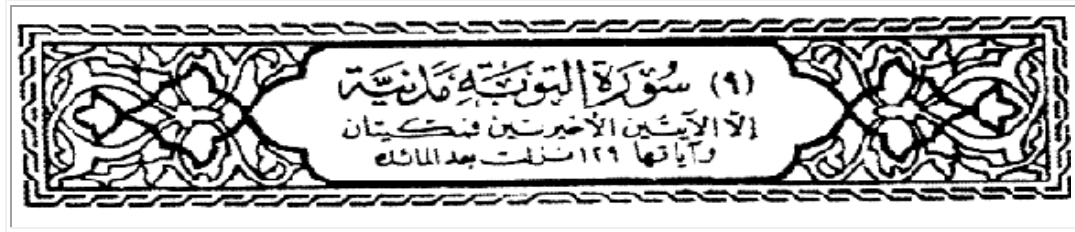 (٩) سُوْرَةُ التوبَةِ مَدَنِيَّة
إلّا الآيتين الأخيرتين فمكيتان
وآياتها ١٢٩ نزلت بعد المائدة